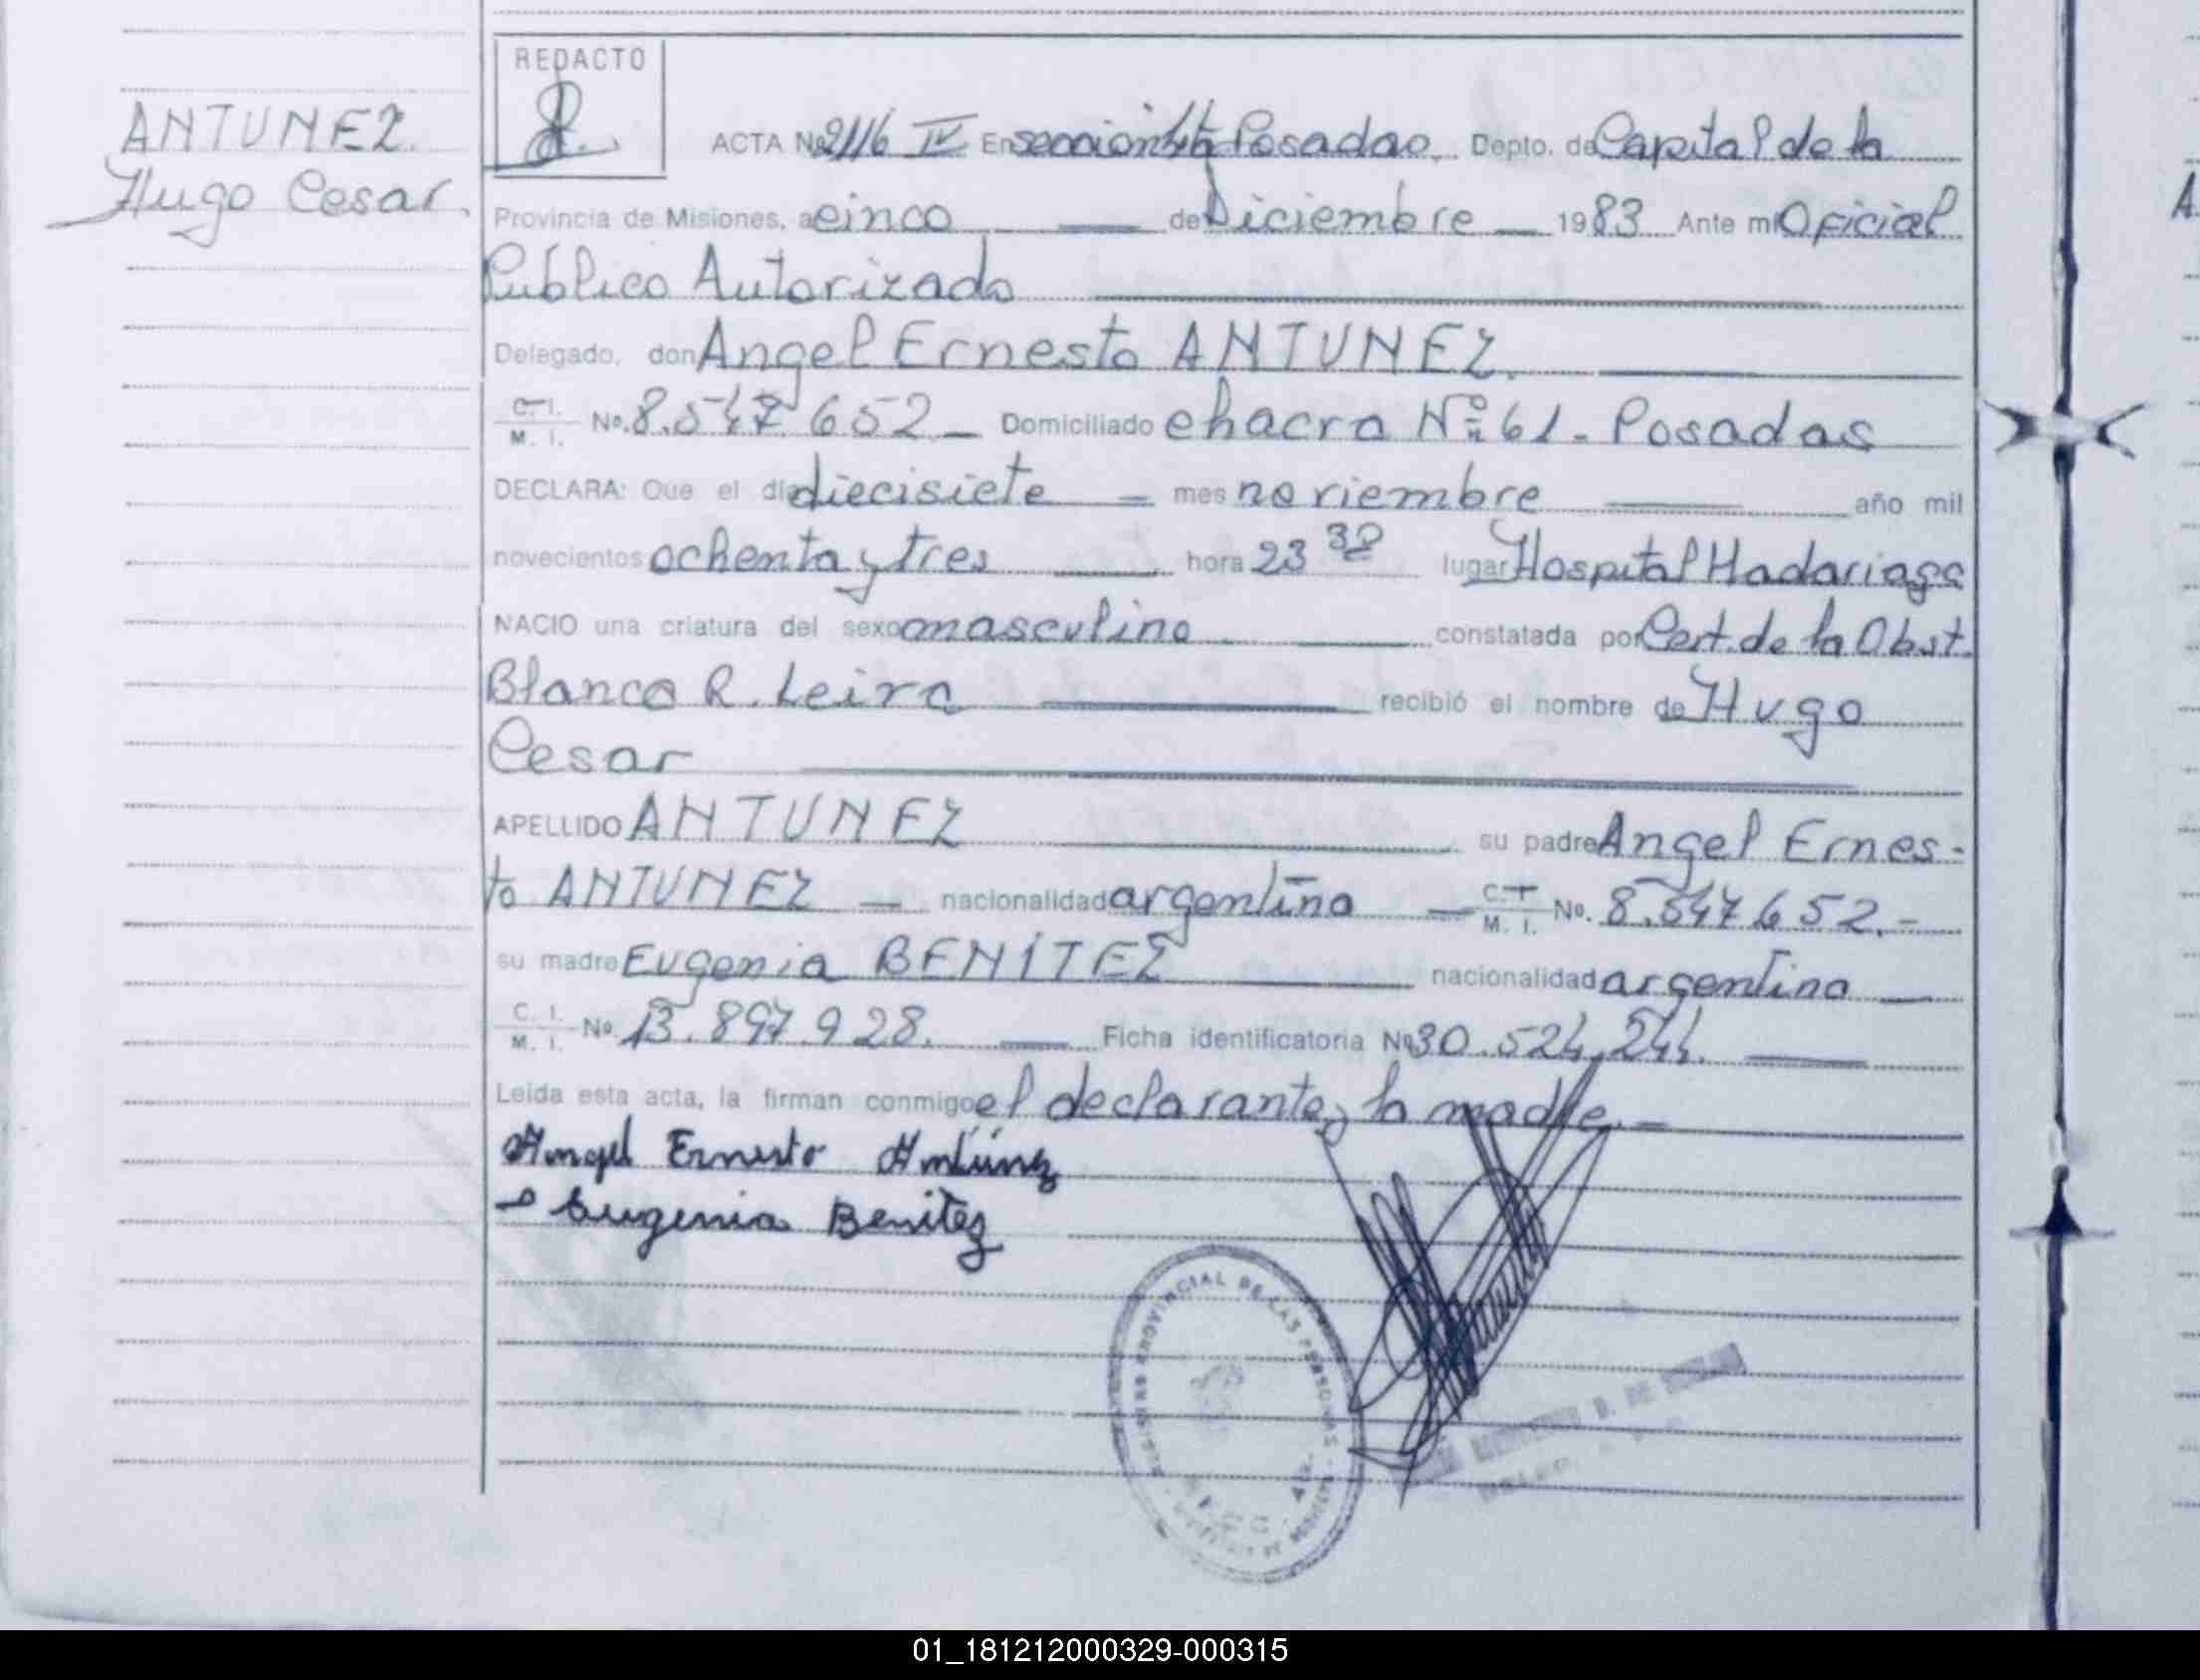 REDACTO
ANTUNEZ
Hugo Cesar.
ACTA Nº 2116 IV En sección 4ta Posadas, Depto. de Capital de la
Provincia de Misiones, a cinco de Diciembre 1983 Ante mí Oficial
Público Autorizado
Delegado, don Angel Ernesto ANTUNEZ.
C. I. M. I. No. 8.547.652 Domiciliado chacra Nº 61 - Posadas
DECLARA: Que el día diecisiete mes noviembre año mil
novecientos ochenta y tres hora 23 30 lugar Hospital Madariaga
NACIO una criatura del sexo masculino constatada por Cert. de la Obst.
Blanca R. Leiva recibió el nombre de Hugo
Cesar
APELLIDO ANTUNEZ su padre Angel Ernes-
to ANTUNEZ nacionalidad argentino C. I. M. I. No. 8.547.652.-
su madre Eugenia BENITEZ nacionalidad argentina
C. I. M. I. No. 13.897.928. Ficha identificatoria Nº 30.524.244.
Leída esta acta, la firman conmigo el declarante y la madre.-
Angel Ernesto Antúnez
Eugenia Benitez
PROVINCIAL DE LAS PERSONAS
01_181212000329-000315